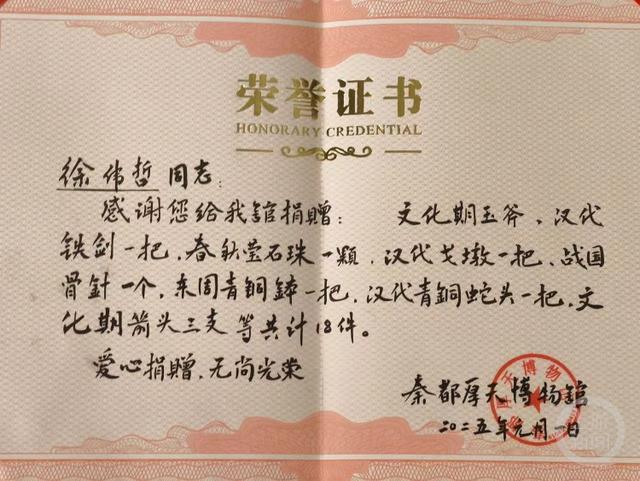 荣誉证书
HONORARY CREDENTIAL
徐伟哲 同志：
感谢您给我舘捐贈： 文化期玉斧、汉代
铁剑一把，春秋莹石珠一顆，汉代戈墩一把，战国
骨針一个，东周青銅鉢一把，汉代青銅蛇头一把，文
化期箭头三支 等共计18件。
爱心捐贈，无尚光荣
秦都厚天博物舘
二〇二五年元月一日